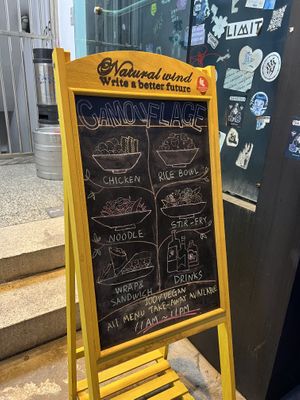 Natural wind
Write a better future
CAMOUFLAGE
CHICKEN
RICE BOWL
NOODLE
STIR-FRY
WRAP &
SANDWICH
DRINKS
100% VEGAN
All MENU TAKE-AWAY AVAILABLE
11AM ~ 11PM
LIMIT